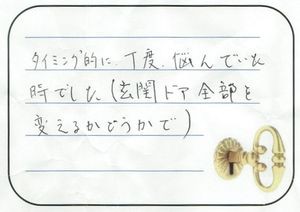 タイミング的に、丁度、悩んでいた
時でした(玄関ドア全部を
変えるかどうかで)